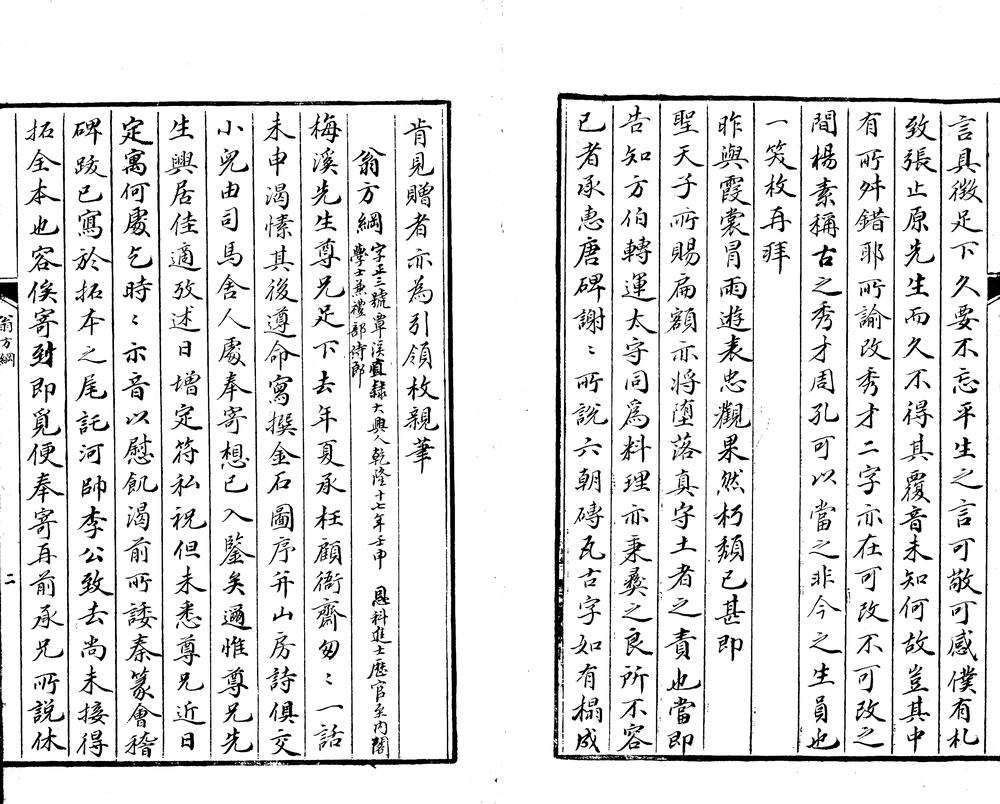 言具徵足下久要不忘平生之言可敬可感僕有札
致張止原先生而久不得其覆音未知何故豈其中
有所舛錯耶所諭改秀才二字亦在可改不可改之
間楊素稱古之秀才周孔可以當之非今之生員也
一笑枚再拜
昨與霞裳冒雨遊表忠觀果然朽頹已甚即
聖天子所賜扁額亦將墮落真守土者之責也當即
告知方伯轉運太守同爲料理亦秉彝之良所不容
已者承惠唐碑謝〻所説六朝磚瓦古字如有搨成
肯見贈者亦為引領枚親筆
翁方綱 字正三號覃溪直隸大興人乾隆十七年壬申 恩科進士歷官至內閣
學士兼禮部侍郎
梅溪先生尊兄足下去年夏承枉顧衙齋匆〻一話
未申渴愫其後遵命寫撰金石圖序并山房詩俱交
小兒由司馬舍人處奉寄想已入鑒矣邇惟尊兄先
生興居佳適攷述日增定符私祝但未悉尊兄近日
定寓何處乞時〻示音以慰飢渴前所諉秦篆會稽
碑跋已寫於拓本之尾託河帥李公致去尚未接得
拓全本也容俟寄到即覓便奉寄再前承兄所説休
翁方綱
二